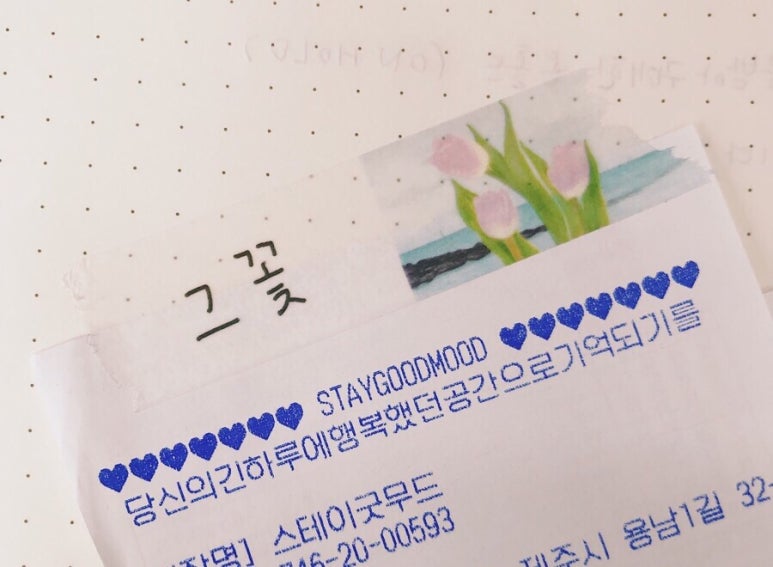 그 꽃
♥♥♥♥♥♥♥ STAYGOODMOOD ♥♥♥♥♥♥♥
당신의긴하루에행복했던공간으로기억되기를
장명] 스테이굿무드
746-20-00593
제주시 용남1길 32-